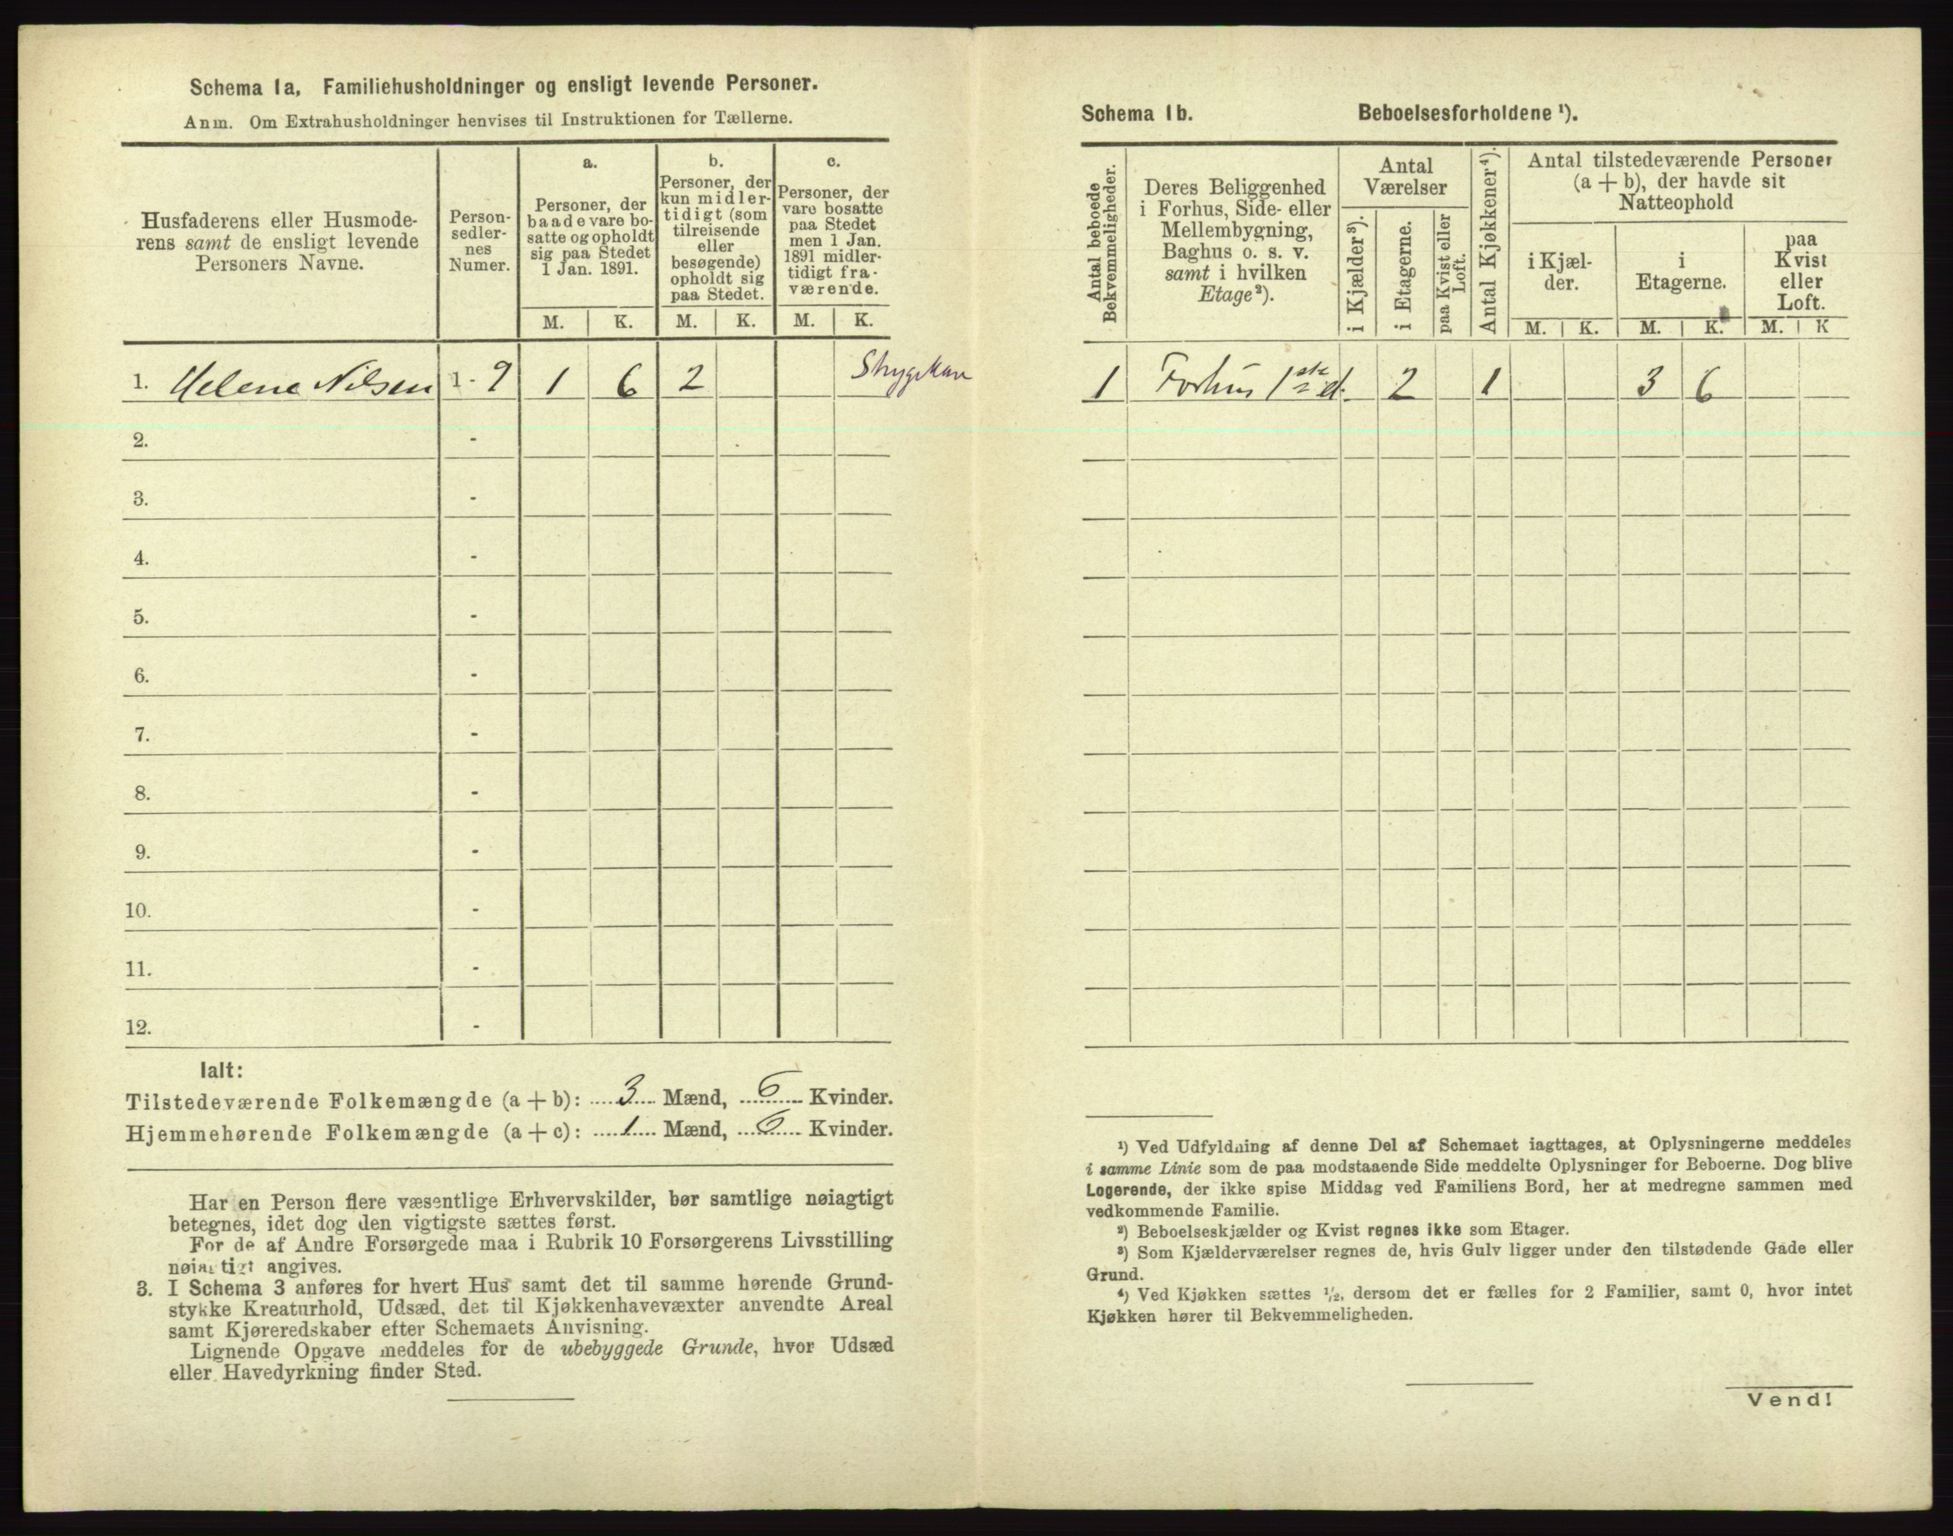 Schema 1a, Familiehusholdninger og ensligt levende Personer.
Anm. Om Extrahusholdninger henvises til Instruktionen for Tællerne.
Husfaderens eller Husmode-
rens samt de ensligt levende
Personers Navne.
Person-
sedler-
nes
Numer.
a.
Personer, der
baade vare bo-
satte og opholdt
sig paa Stedet
1 Jan. 1891.
b.
Personer, der
kun midler-
tidigt (som
tilreisende
eller
besøgende)
opholdt sig
paa Stedet.
c.
Personer, der
vare bosatte
paa Stedet
men 1 Jan.
1891 midler-
tidigt fra-
værende.
M. K. M. K. M. K.
1. Helene Nilsen 1 - 9 1 6 2
2. -
3. -
4. -
5. -
6. -
7. -
8. -
9. -
10. -
11. -
12. -
Ialt:
Tilstedeværende Folkemængde (a + b): 3 Mænd, 6 Kvinder.
Hjemmehørende Folkemængde (a + c): 1 Mænd, 6 Kvinder.
Har en Person flere væsentlige Erhvervskilder, bør samtlige nøiagtigt
betegnes, idet dog den vigtigste sættes først.
For de af Andre Forsørgede maa i Rubrik 10 Forsørgerens Livsstilling
nøiagtigt angives.
3. I Schema 3 anføres for hvert Hus samt det til samme hørende Grund-
stykke Kreaturhold, Udsæd, det til Kjøkkenhavevæxter anvendte Areal
samt Kjøreredskaber efter Schemaets Anvisning.
Lignende Opgave meddeles for de ubebyggede Grunde, hvor Udsæd
eller Havedyrkning finder Sted.
Schema 1b. Beboelsesforholdene ¹).
Antal beboede
Bekvemmeligheder.
Deres Beliggenhed
i Forhus, Side- eller
Mellembygning,
Baghus o. s. v.
samt i hvilken
Etage²).
Antal
Værelser
i Kjælder³).
i Etagerne.
paa Kvist eller
Loft.
Antal Kjøkkener⁴).
Antal tilstedeværende Personer
(a + b), der havde sit
Natteophold
i Kjæl-
der.
i
Etagerne.
paa
Kvist
eller
Loft.
M. K. M. K. M. K
1 Forhus 1ste 2 1 3 6
¹) Ved Udfyldning af denne Del af Schemaet iagttages, at Oplysningerne meddeles
i samme Linie som de paa modstaaende Side meddelte Oplysninger for Beboerne. Dog blive
Logerende, der ikke spise Middag ved Familiens Bord, her at medregne sammen med
vedkommende Familie.
²) Beboelseskjælder og Kvist regnes ikke som Etager.
³) Som Kjælderværelser regnes de, hvis Gulv ligger under den tilstødende Gade eller
Grund.
⁴) Ved Kjøkken sættes ½, dersom det er fælles for 2 Familier, samt 0, hvor intet
Kjøkken hører til Bekvemmeligheden.
Vend!